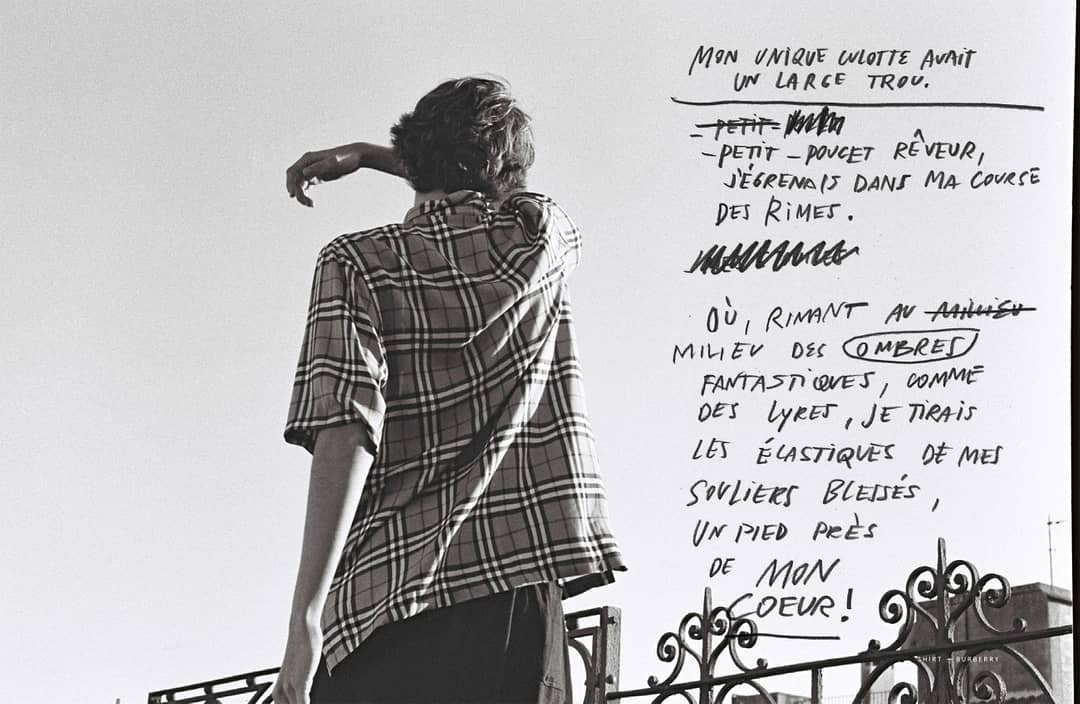 MON UNIQUE CULOTTE AVAIT
UN LARGE TROU.
- PETIT-
- PETIT - POUCET RÊVEUR,
J'ÉGRENAIS DANS MA COURSE
DES RIMES.
OÙ, RIMANT AU MILIEU
MILIEU DES OMBRES
FANTASTIQUES, COMME
DES LYRES, JE TIRAIS
LES ÉLASTIQUES DE MES
SOULIERS BLESSÉS,
UN PIED PRÈS
DE MON
COEUR!
SHIRT - BURBERRY